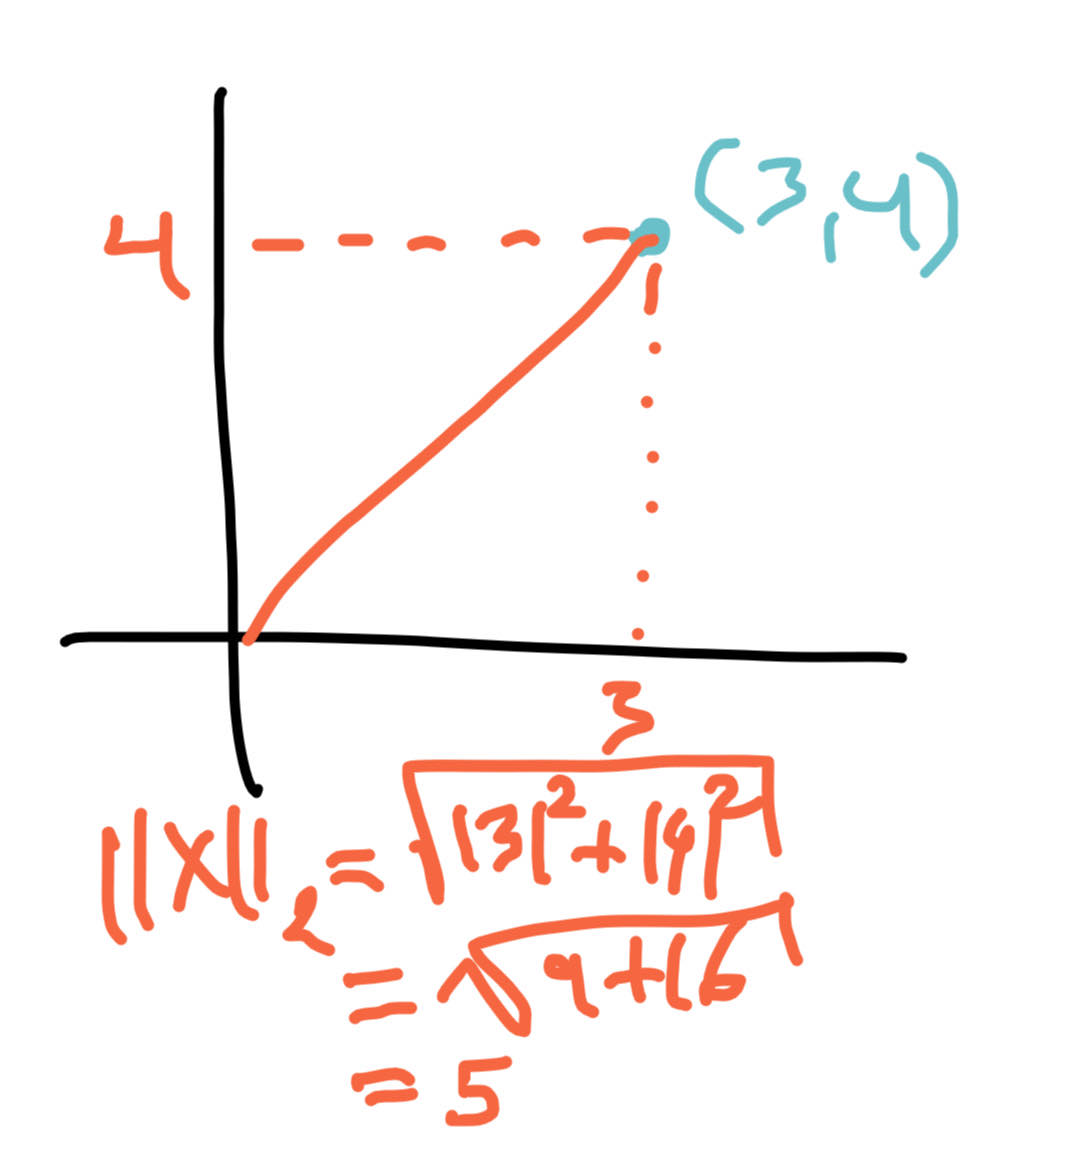 (3,4)
4
3
||X||₂ = √(|3|²+|4|²)
= √(9+16)
= 5